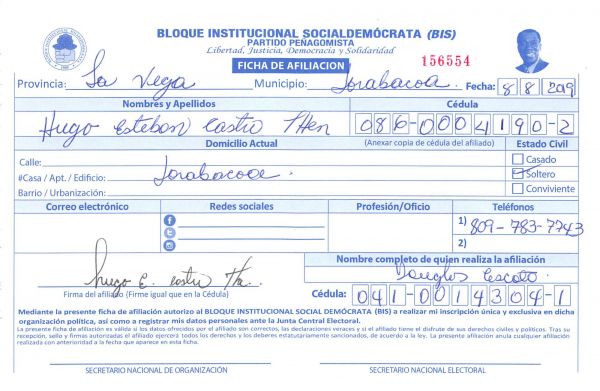 BLOQUE INSTITUCIONAL SOCIALDEMÓCRATA (BIS)
PARTIDO PEÑAGOMISTA
Libertad, Justicia, Democracia y Solidaridad
FICHA DE AFILIACION
156554
Provincia: La Vega Municipio: Jarabacoa. Fecha: 8 8 2019
Nombres y Apellidos Cédula
Hugo Esteban Castro THen 086-0004190-2
Domicilio Actual (Anexar copia de cédula del afiliado) Estado Civil
Calle: Casado
#Casa / Apt. / Edificio: Jarabacoa. Soltero
Barrio / Urbanización: Conviviente
Correo electrónico Redes sociales Profesión/Oficio Teléfonos
1) 809-783-7743
2)
Nombre completo de quien realiza la afiliación
Hugo E. Castro Douglas Escoto
Firma del afiliado (Firme igual que en la Cédula) Cédula: 041-0014304-1
Mediante la presente ficha de afiliación autorizo al BLOQUE INSTITUCIONAL SOCIAL DEMÓCRATA (BIS) a realizar mi inscripción única y exclusiva en dicha
organización política, así como a registrar mis datos personales ante la Junta Central Electoral.
La presente ficha de afiliación es válida si los datos ofrecidos por el afiliado son correctos, las declaraciones veraces y si el afiliado tiene el disfrute de sus derechos civiles y políticos. Tras su
recepción, sello y firmas autorizadas el afiliado ejercerá todos los derechos y los deberes estatutariamente sancionados, de acuerdo a la ley. La presente afiliación anula cualquier afiliación
realizada con anterioridad a la fecha que aparece en esta ficha.
SECRETARIO NACIONAL DE ORGANIZACIÓN SECRETARIO NACIONAL ELECTORAL